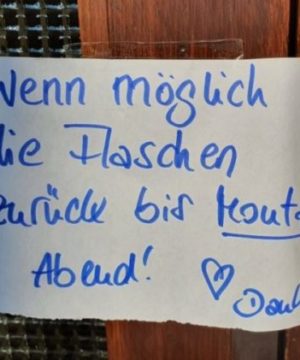 Wenn möglich
die Flaschen
zurück bis Montag
Abend!
♡ Dank